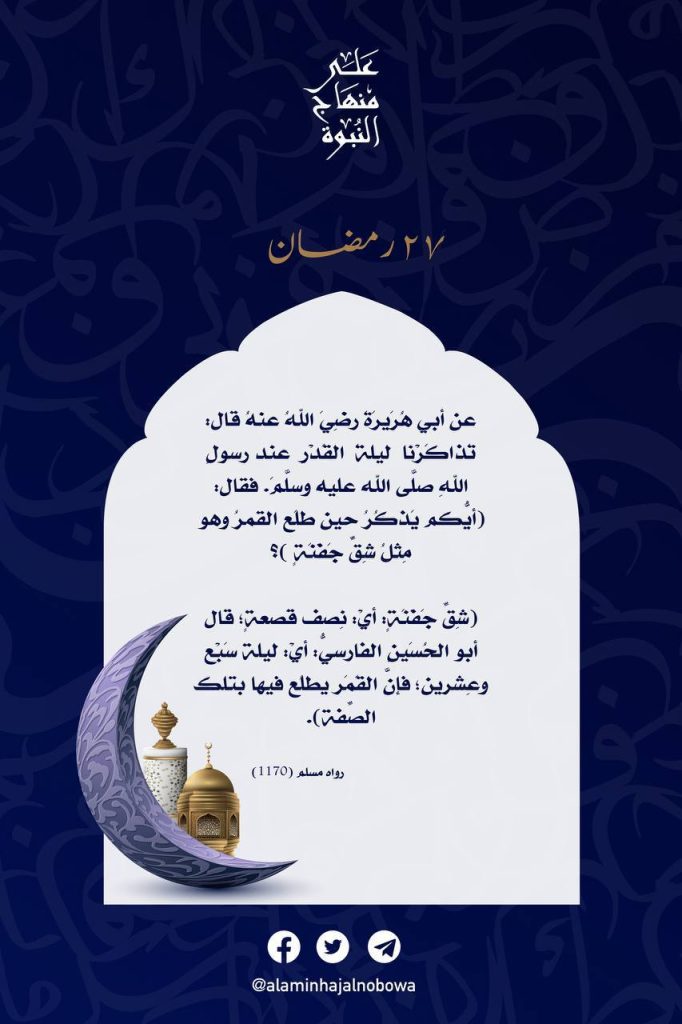 عَلَى
مِنهَاج
النُّبوة
٢٧ رمضان
عن أبي هُرَيرَة رضِيَ اللهُ عنهُ قال:
تذاكَرْنا ليلة القدْر عند رسولِ
اللهِ صلَّى الله عليه وسلَّمَ. فقال:
(أيُّكم يَذكُرُ حين طلَع القمرُ وهو
مِثلُ شِقِّ جَفْنَةٍ )؟
(شِقِّ جَفْنَةٍ: أيْ: نِصف قصعةٍ؛ قال
أبو الحُسَين الفارسيُّ: أيْ: ليلة سَبْع
وعِشرين؛ فإنَّ القمَر يطلع فيها بتلك
الصِّفة).
رواه مسلم (1170)
@alaminhajalnobowa